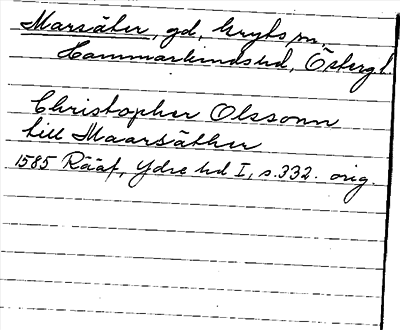 Marsäter, gd, Gryts sn,
Hammarkinds hd, Östergl.
Christopher Olssonn
till Maarsäther
1585 Rääf, Ydre hd I, s. 332. orig.